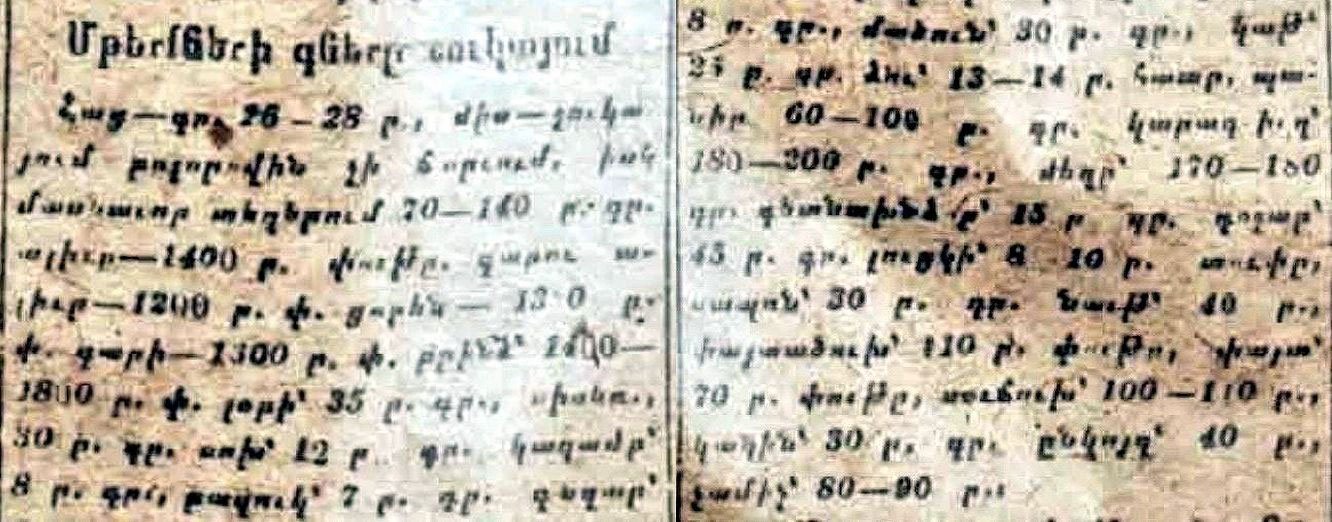 Մթերքների գները շուկայում
Հաց—գր. 26—28 ր., միս—շուկա-
յում բոլորովին չի ճարւում, իսկ
մասնաւոր տեղերում 70—140 ր. գր.
ալիւր—1400 ր. փութը. գարու ա-
լիւր—1200 ր. փ. ցորեն— ր.
փ. գարի—1300 ր. փ. բրինձ՝
1800 ր. փ. լօբի՝ 35 ր. գր.,
30 ր. գր. սոխ՝ 12 ր. գր. կաղամբ՝
8 ր. գր., բազուկ՝ 7 ր. գր. գազար՝
8 ր. գր., մածուն՝ 30 ր. գր., կաթ՝
ր. գր. ձու՝ 13—14 ր. հատը, պա-
նիր 60—100 ր. գր. կարագ իւղ՝
180—200 ր. գր., մեղր՝ 170—180
գր. գետնախնձոր՝ 15 ր գր.
ր. գր. լուցկի՝ 8 10 ր. տուփը,
սապոն՝ 30 ր. գր. նաւթ՝ 40 ր.,
110 ր. փութը, փայտ՝
70 ր. փութը, ածուխ՝ 100—110 ր.,
կաղին՝ 30 ր. գր. ընկոյզ՝ 40 ր.,
չամիչ՝ 80—90 ր.։